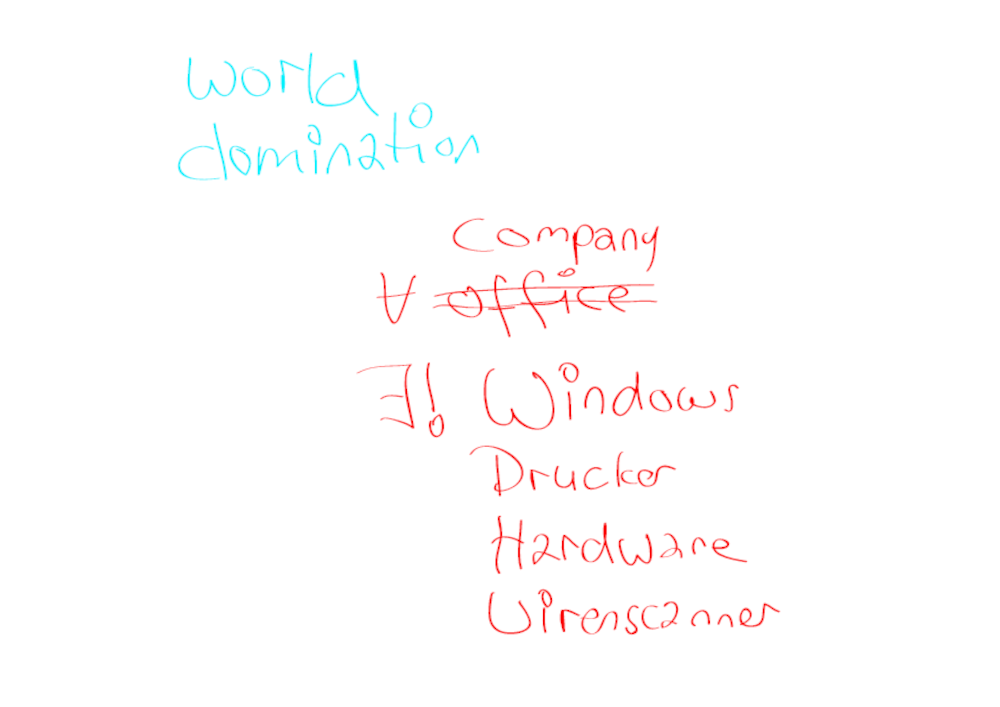 world
domination
Company
∀ office
∃! Windows
Drucker
Hardware
Virenscanner